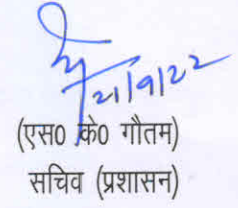 21/9/22
(एस0 के0 गौतम)
सचिव (प्रशासन)